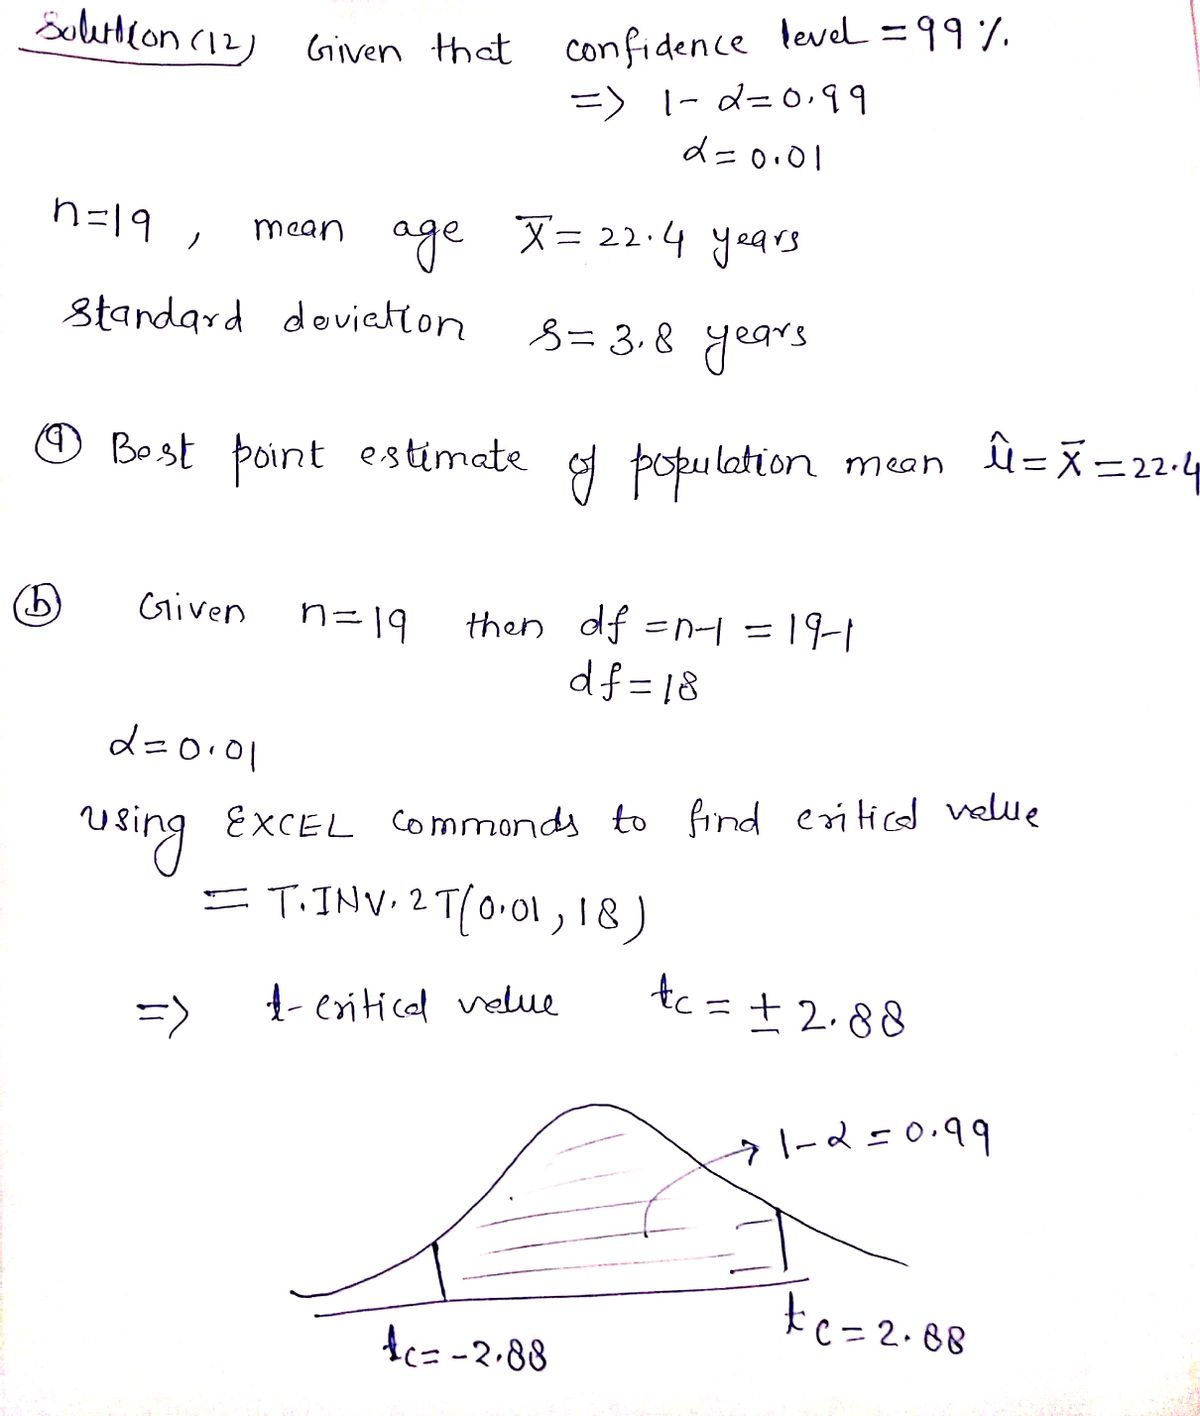 Solution (12) Given that confidence level = 99 %.
=> 1 - α = 0.99
α = 0.01
n=19 , mean age X̄ = 22.4 years
standard deviation s = 3.8 years
ⓐ Best point estimate of population mean μ̂ = x̄ = 22.4
ⓑ Given n = 19 then df = n-1 = 19-1
df = 18
α = 0.01
using EXCEL commonds to find critical value
= T.INV.2T(0.01, 18)
=> t-critical value tc = ± 2.88
1-α = 0.99
tc = -2.88
tc = 2.88